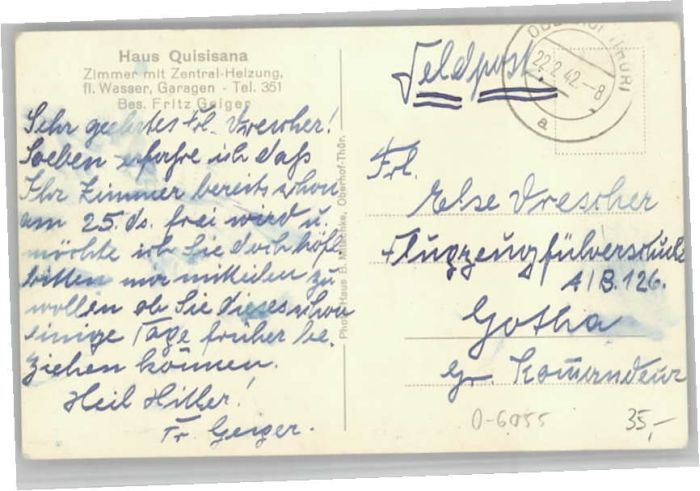 Haus Quisisana
Zimmer mit Zentral-Heizung,
fl. Wasser, Garagen - Tel. 351
Bes. Fritz Geiger
Sehr geehrtes Frl. Drescher!
Soeben erfahre ich daß
Ihr Zimmer bereits schon
am 25. ds. frei wird u.
möchte ich Sie doch höfl.
bitten mir mitteilen zu
wollen ob Sie dieses schon
einige Tage früher be.
ziehen können.
Heil Hitler!
Fr. Geiger.
Photo-Haus B. Nitschke, Oberhof-Thür.
Feldpost.
OBERHOF (THÜR)
22.2.42.-8
a
Frl.
Else Drescher
Flugzeugführerschule
A/B. 126.
Gotha
Gr. Komandeur
O-6055
35,-